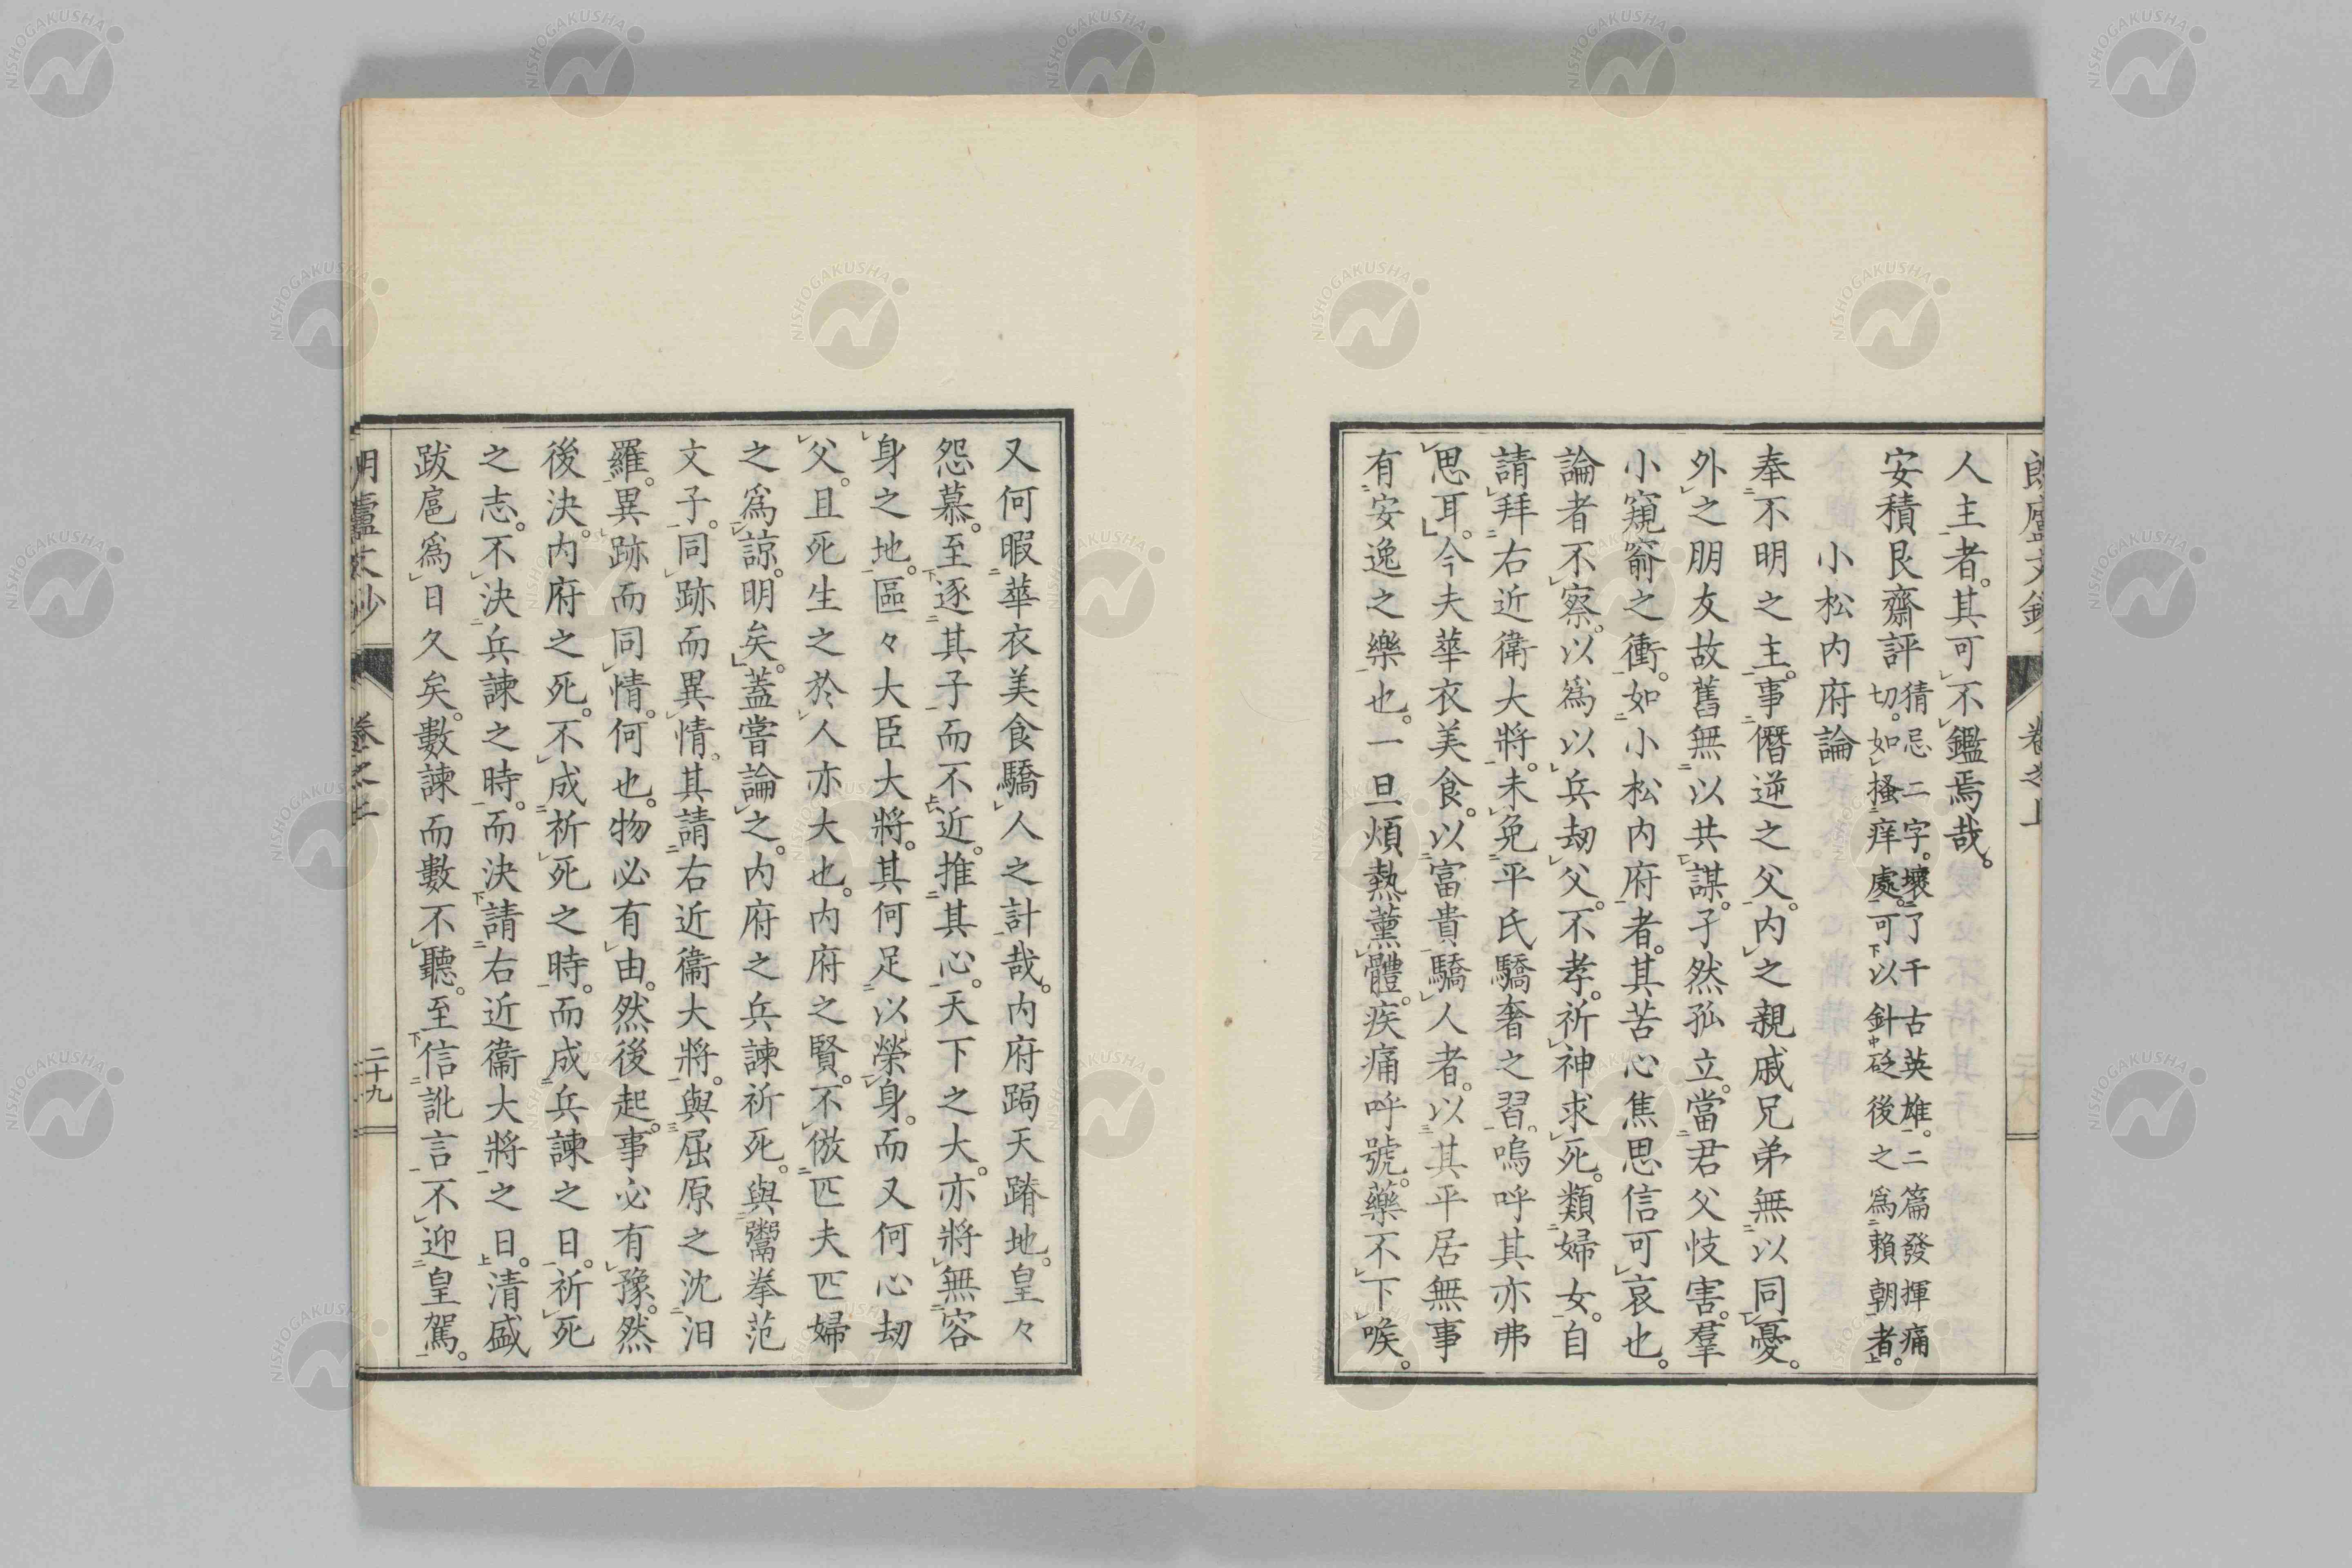 人主者。其可不鑑焉哉。
安積艮齋評
猜忌二字。壞了千古英雄。二篇發揮痛
切。如搔痒處。可以針砭後之爲賴朝者。
小松内府論
奉不明之主。事僭逆之父。内之親戚兄弟無以同憂。
外之朋友故舊無以共謀。孑然孤立。當君父忮害。羣
小窺窬之衝。如小松内府者。其苦心焦思信可哀也。
論者不察。以爲以兵劫父。不孝。祈神求死。類婦女。自
請拜右近衛大將。未免平氏驕奢之習。嗚呼其亦弗
思耳。今夫華衣美食。以富貴驕人者。以其平居無事
有安逸之樂也。一旦煩熱薰體。疾痛呼號。藥不下喉。
又何暇華衣美食驕人之計哉。内府跼天蹐地。皇々
怨慕。至逐其子而不近。推其心。天下之大。亦將無容
身之地。區々大臣大將。其何足以榮身。而又何心劫
父。且死生之於人亦大也。内府之賢。不倣匹夫匹婦
之爲諒。明矣。蓋嘗論之。内府之兵諫祈死。與鬻拳范
文子。同跡而異情。其請右近衞大將。與屈原之沈汨
羅。異跡而同情。何也。物必有由。然後起。事必有豫。然
後決。内府之死。不成祈死之時。而成兵諫之日。祈死
之志。不決兵諫之時。而決請右近衞大將之日。清盛
跋扈爲日久矣。數諫而數不聽。至信訛言不迎皇駕。
卷之上
二十九